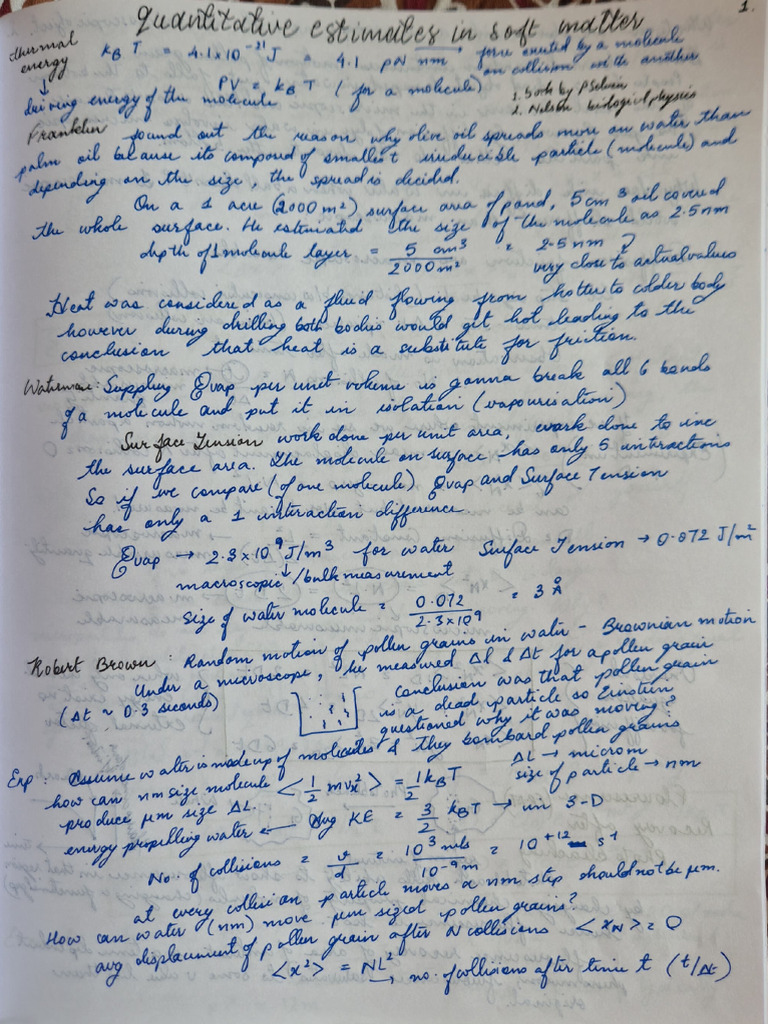 1.
Quantitative estimates in soft matter
thermal energy
k_B T = 4.1x10^-21 J = 4.1 pN nm force exerted by a molecule on collision with another
PV = k_B T (for a molecule)
1. Soft by P Nelson
2. Nelson biological physics
driving energy of the molecule
Franklin found out the reason why olive oil spreads more on water than
palm oil because its composed of smallest irreducible particle (molecule) and
depending on the size, the spread is decided.
On a 1 acre (2000 m²) surface area of pond, 5 cm³ oil covered
the whole surface. He estimated the size of the molecule as 2.5 nm
depth of 1 molecule layer = 5 cm³ / 2000 m² = 2.5 nm ?
very close to actual values
Heat was considered as a fluid flowing from hotter to colder body
however during drilling both bodies would get hot leading to the
conclusion that heat is a substitute for friction.
Supplying Qvap per unit volume is gonna break all 6 bonds
of a molecule and put it in isolation (vapourisation)
Surface Tension work done per unit area, work done to inc
the surface area. The molecule on surface has only 5 interactions
So if we compare (of one molecule) Qvap and Surface Tension
has only a 1 interaction difference
Qvap → 2.3x10^9 J/m³ for water Surface Tension → 0.072 J/m²
↓
macroscopic/bulk measurement
size of water molecule = 0.072 / 2.3x10^9 = 3 Å
Robert Brown : Random motion of pollen grains in water - Brownian motion
Under a microscope, he measured Δl & Δt for a pollen grain
(Δt ~ 0.3 seconds)
conclusion was that pollen grain
is a dead particle so Einstein
questioned why it was moving?
Exp : Assume water is made up of molecules & they bombard pollen grains
how can nm size molecule
produce μm size ΔL.
<½ mv_x²> = ½ k_B T
ΔL → microm
size of particle → nm
energy propelling water ← Avg KE = 3/2 k_B T → in 3-D
No. of collisions = v/d = 10³ m/s / 10^-9 m = 10^+12 s^-1
at every collision particle moves a nm step should not be μm.
How can water (nm) move μm sized pollen grains?
avg displacement of pollen grain after N collisions <x_N> = 0
<x²> = NL²
→ no. of collisions after time t (t/Δt)